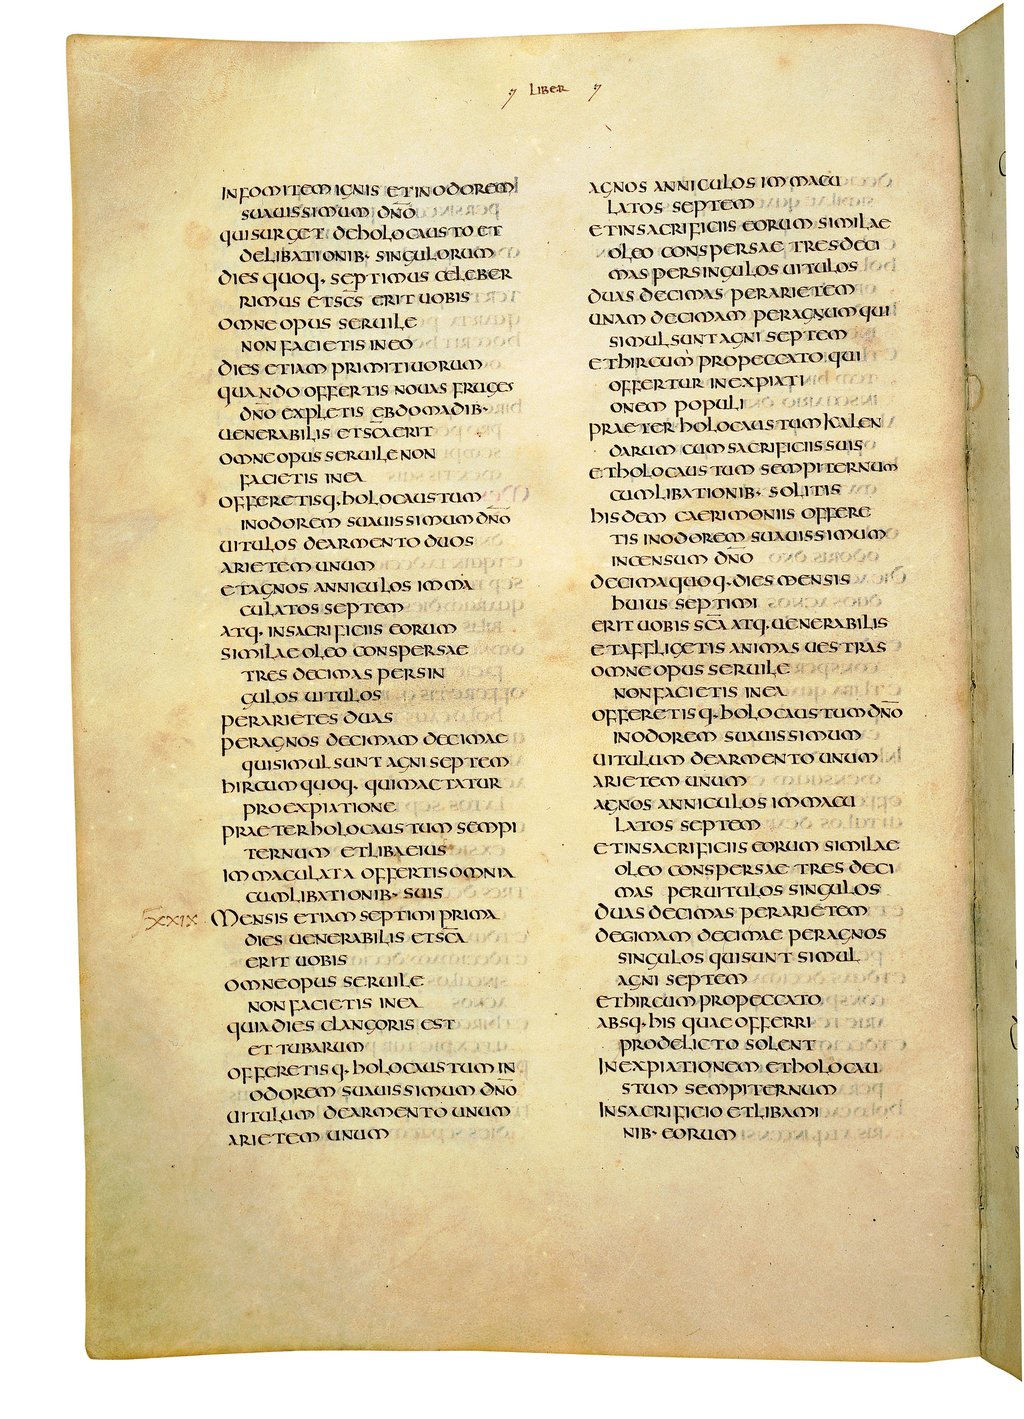 LIBER
INFOMITEM IGNIS ETINODOREM
SUAUISSIMUM DN̄O
QUISURGET DEHOLOCAUSTO ET
DELIBATIONIB· SINGULORUM
DIES QUOQ· SEPTIMUS CELEBER
RIMUS ETSC̄S ERIT UOBIS
OMNE OPUS SERUILE
NON FACIETIS INEO
DIES ETIAM PRIMITIUORUM
QUANDO OFFERTIS NOUAS FRUGES
DN̄O EXPLETIS EBDOMADIB·
UENERABILIS ETSC̄A ERIT
OMNE OPUS SERUILE NON
FACIETIS INEA
OFFERETISQ· HOLOCAUSTUM
INODOREM SUAUISSIMUM DN̄O
UITULOS DEARMENTO DUOS
ARIETEM UNUM
ETAGNOS ANNICULOS IMMA
CULATOS SEPTEM
ATQ· INSACRIFICIIS EORUM
SIMILAE OLEO CONSPERSAE
TRES DECIMAS PERSIN
GULOS UITULOS
PERARIETES DUAS
PERAGNOS DECIMAM DECIMAE
QUISIMUL SUNT AGNI SEPTEM
HIRCUM QUOQ· QUIMACTATUR
PROEXPIATIONE
PRAETERHOLOCAUSTUM SEMPI
TERNUM ETLIBAEIUS
IMMACULATA OFFERTIS OMNIA
CUMLIBATIONIB· SUIS
XXIX MENSIS ETIAM SEPTIMI PRIMA
DIES UENERABILIS ETSC̄A
ERIT UOBIS
OMNEOPUS SERUILE
NON FACIETIS INEA
QUIADIES CLANGORIS EST
ET TUBARUM
OFFERETISQ· HOLOCAUSTUM IN
ODOREM SUAUISSIMUM DN̄O
UITULUM DEARMENTO UNUM
ARIETEM UNUM
AGNOS ANNICULOS IMMACU
LATOS SEPTEM
ETINSACRIFICIIS EORUM SIMILAE
OLEO CONSPERSAE TRESDECI
MAS PERSINGULOS UITULOS
DUAS DECIMAS PERARIETEM
UNAM DECIMAM PERAGNUMQUI
SIMULSUNTAGNI SEPTEM
ETHIRCUM PROPECCATO QUI
OFFERTUR INEXPIATI
ONEM POPULI
PRAETER HOLOCAUSTUM KALEN
DARUM CUMSACRIFICIISSUIS
ETHOLOCAUSTUM SEMPITERNUM
CUMLIBATIONIB· SOLITIS
HISDEM CAERIMONIIS OFFERE
TIS INODOREM SUAUISSIMUM
INCENSUM DN̄O
DECIMAQUOQ· DIES MENSIS
HUIUS SEPTIMI
ERIT UOBIS SC̄A ATQ· UENERABILIS
ETAFFLIGETIS ANIMAS UESTRAS
OMNEOPUS SERUILE
NONFACIETIS INEA
OFFERETISQ· HOLOCAUSTUM DN̄O
INODOREM SUAUISSIMUM
UITULUM DEARMENTO UNUM
ARIETEM UNUM
AGNOS ANNICULOS IMMACU
LATOS SEPTEM
ETINSACRIFICIIS EORUM SIMILAE
OLEO CONSPERSAE TRES DECI
MAS PERUITULOS SINGULOS
DUAS DECIMAS PERARIETEM
DECIMAM DECIMAE PERAGNOS
SINGULOS QUISUNT SIMUL
AGNI SEPTEM
ETHIRCUM PROPECCATO
ABSQ· HIS QUAE OFFERRI
PRODELICTO SOLENT
INEXPIATIONEM ETHOLOCAU
STUM SEMPITERNUM
INSACRIFICIO ETLIBAMI
NIB· EORUM